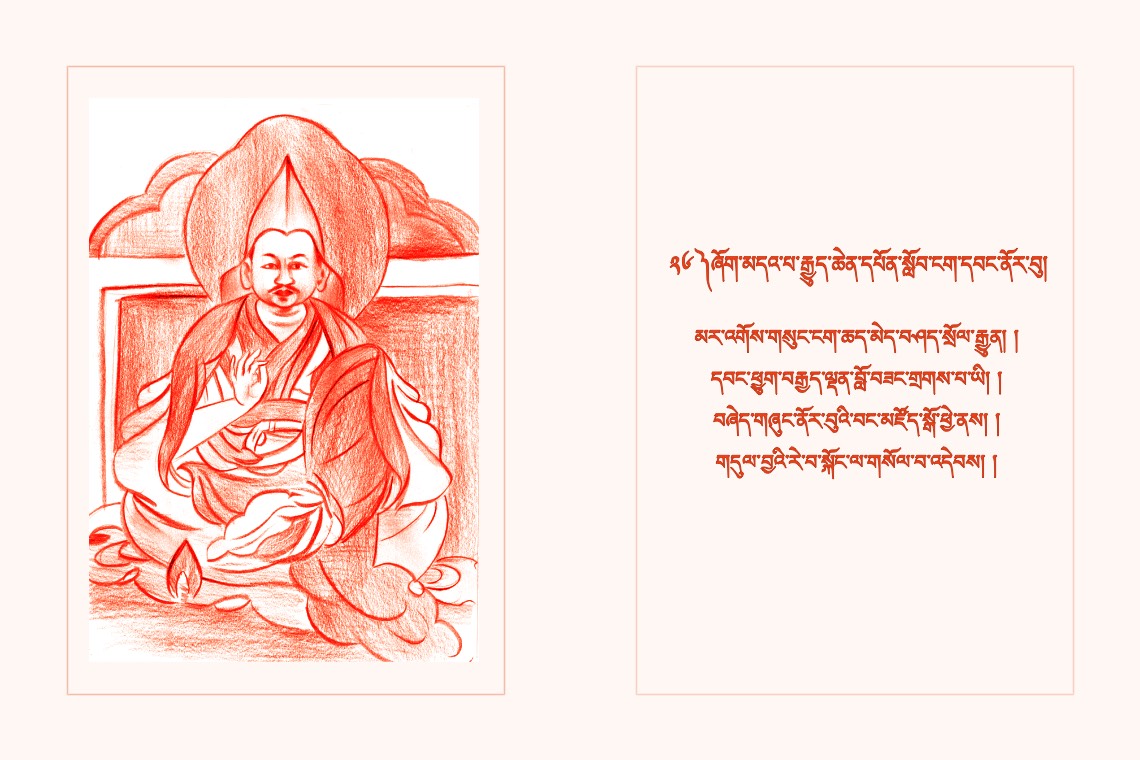 ༢༦ ༽ཞོག་མདའ་པ་རྒྱུད་ཆེན་དཔོན་སློབ་ངག་དབང་ནོར་བུ།
མར་འགོས་གསུང་ངག་ཆད་མེད་བཤད་སྲོལ་རྒྱུན། །
དབང་ཕྱུག་བརྒྱད་ལྡན་བློ་བཟང་གྲགས་པ་ཡི། །
བཞེད་གཞུང་ནོར་བུའི་བང་མཛོད་སྒོ་ཕྱེ་ནས། །
གདུལ་བྱའི་རེ་བ་སྐོང་ལ་གསོལ་བ་འདེབས། །